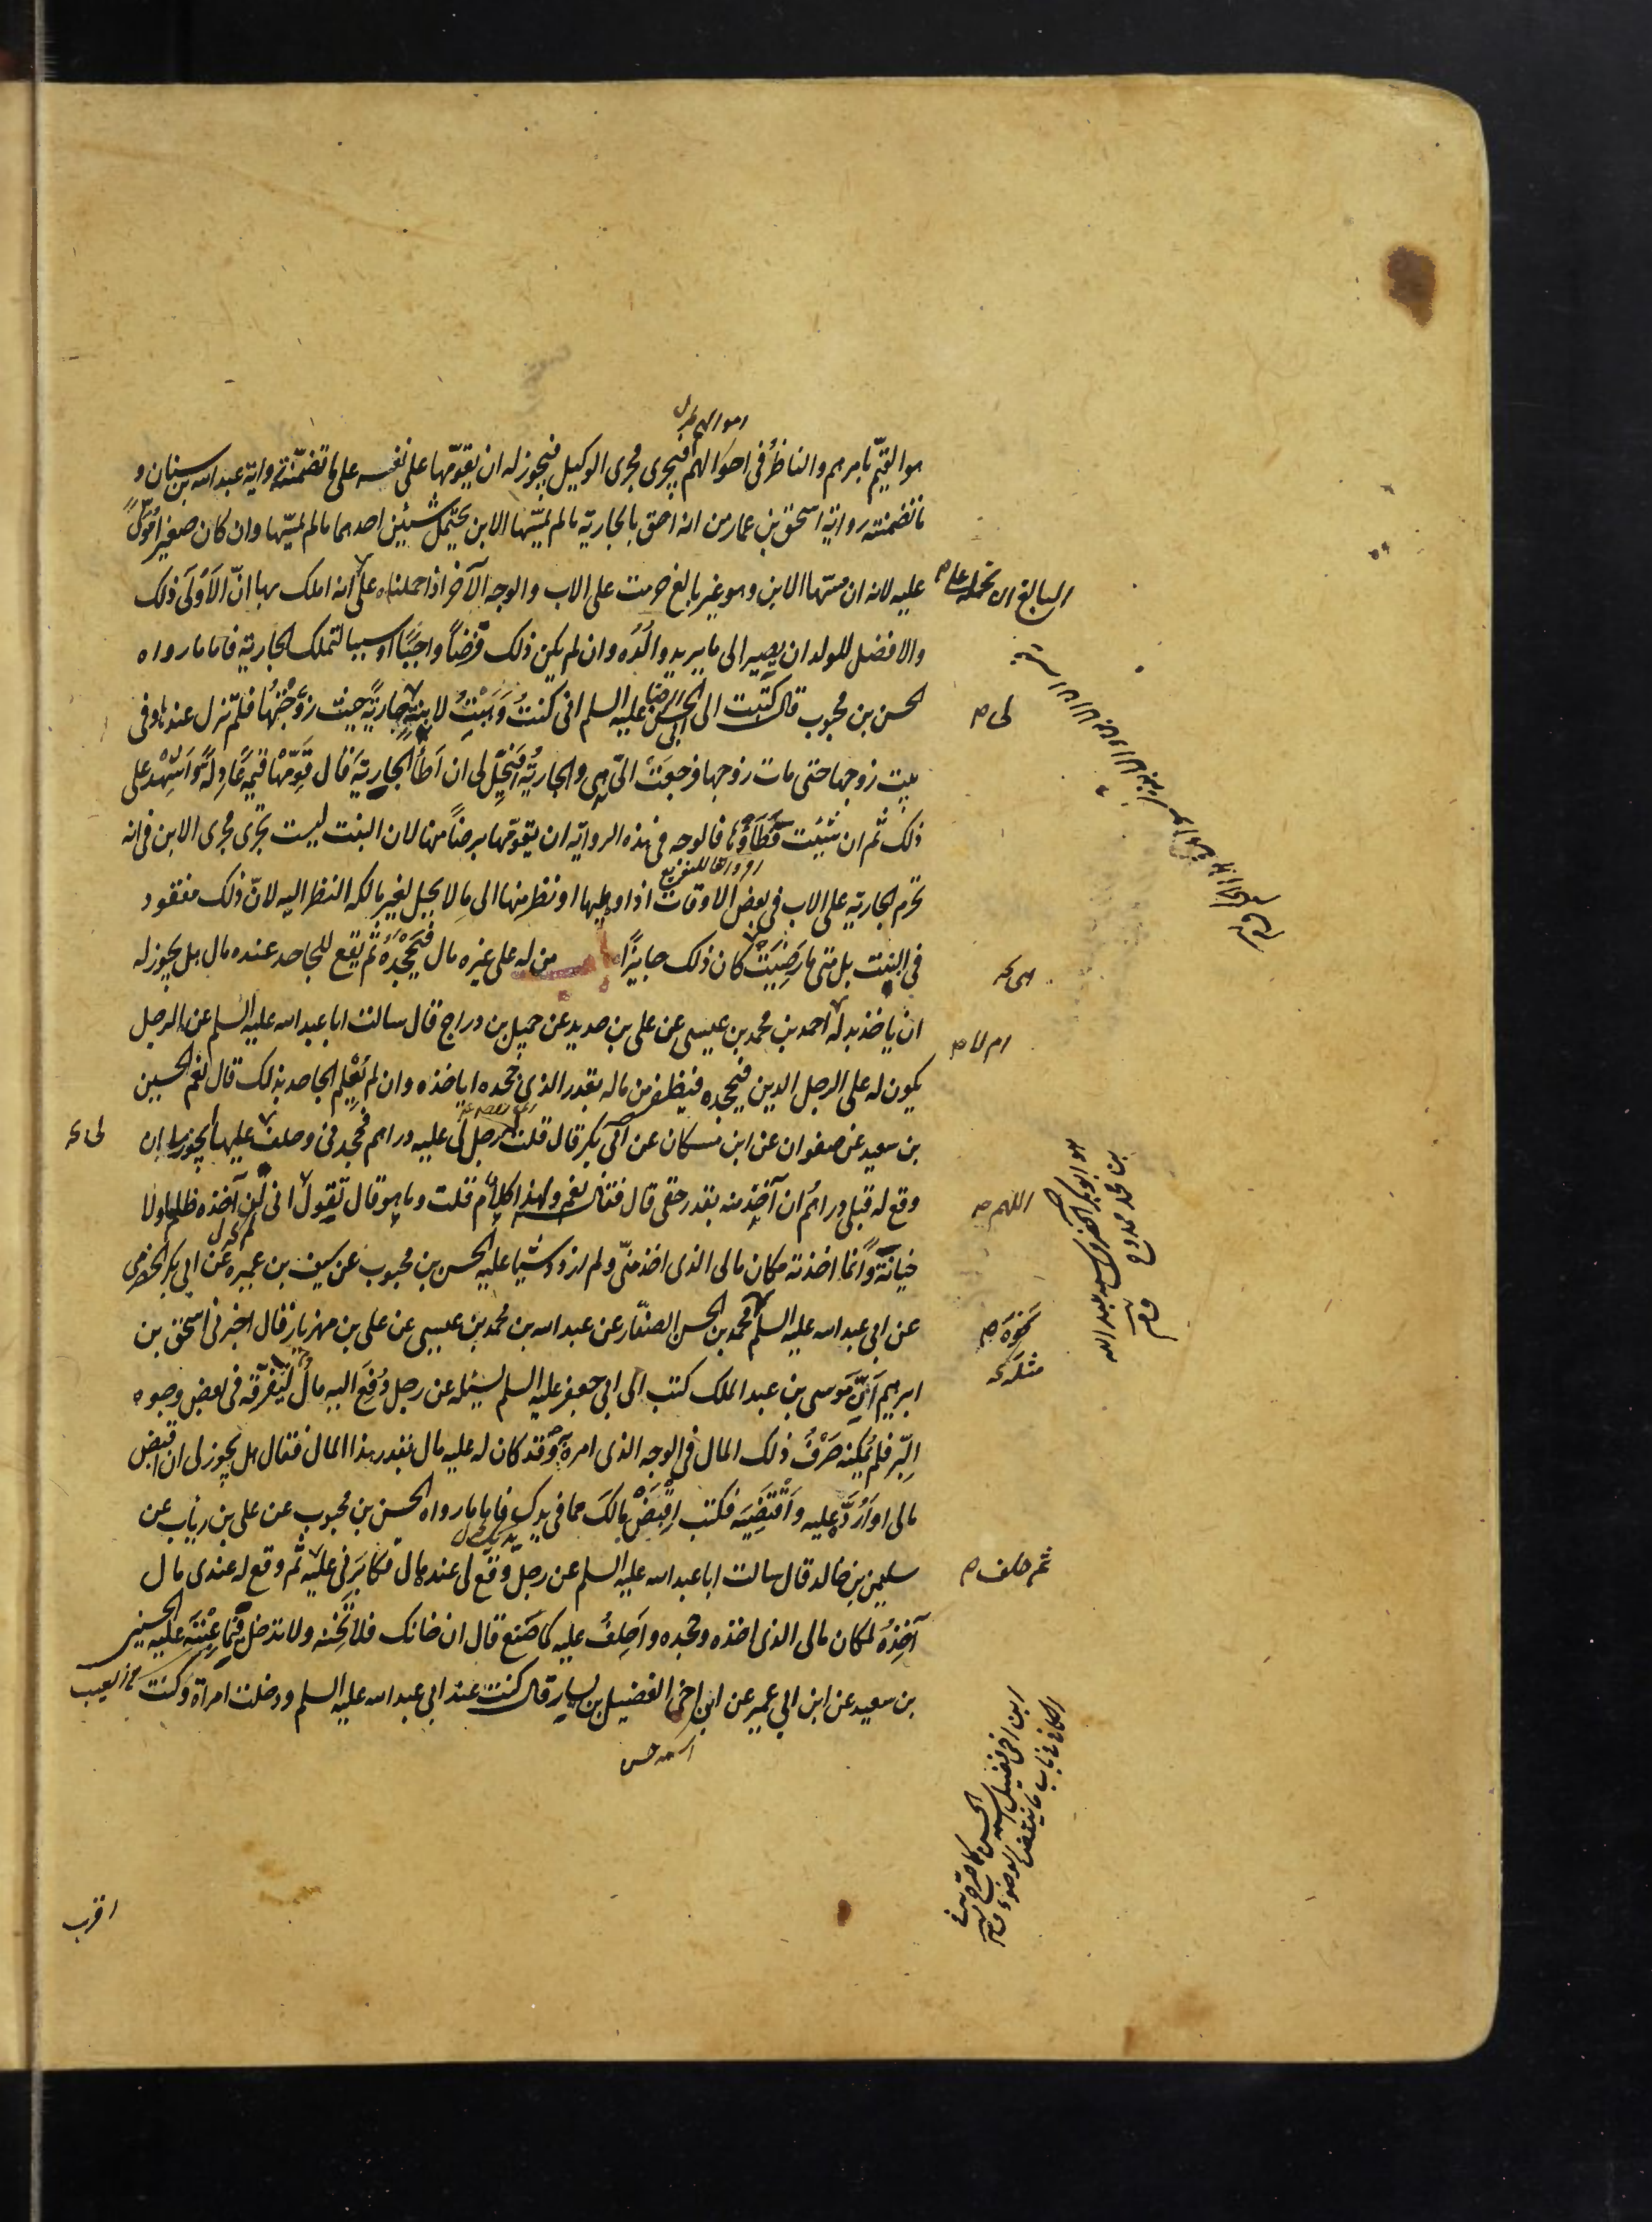 اموالهم خ ل
هو القيّم بامرهم والناظرُ فى احوالهم فيجرى مجرى الوكيل فيجوز له ان يقوّمها على نفسه على ما تضمّنته رواية عبد الله بن سنان و
ما تضمنته رواية اسحق بن عمار من انه احق بالجارية ما لم يمسّها الابن يحتمل شيئين احدهما ما لم يمسّها وان كان صغيرا
البالغ ان نحمله على ما
عليه لانه ان مسّها الابن وهو غير بالغ حرمت على الاب والوجه الآخر اذا حملناه على انه املك بها انّ الاَوْلَى ذلك
والافضل للولد ان يصير الى ما يريد والدُه وان لم يكن ذلك فرضاً واجبًا او سببا لتملك الجارية فاما ما رواه
الحسن بن محبوب قال كتبت الى ابى الحسن الرضا عليه السلم انى كنتُ وَهَبْتُ لابنةٍ لى جاريةً حيث زوّجتُها فلم تزل عندها وفى
لى ص
بيت زوجها حتى مات زوجها فرجعَتْ الىّ هى والجاريةُ افيَحِلّ لى ان اَطأَ الجاريةَ قال قَوِّمْها قيمةً عادلةً واَشْهِدْ على
ذلك ثم ان شئت فطَأْها فالوجه فى هذه الرواية ان يقوّمها برضاً منها لان البنت ليست تجرى مجرى الابن فى انه
تحرم الجارية على الاب فى بعض الاوقات اذا وطيها او نظر منها الى ما لا يحل لغير مالكه النظر اليه لانّ ذلك مفقود
فى البنت بل متى ما رَضِيَتْ كان ذلك جايزًا من له على غيره مال فيَجْحَدُه ثم يقع للجاحد عنده مال هل يجوز له
ان ياخذ بدله احمد بن محمد بن عيسى عن على بن حديد عن جميل بن دراج قال سالت ابا عبد الله عليه السلم عن الرجل
ام لا ص
يكون له على الرجل الدين فيجحده فيظفر من ماله بقدر الذى جحده اياخذه وان لم يُعْلِمِ الجاحد بذلك قال نعم الحسين
بن سعيد عن صفوان عن ابن مسكان عن ابى بكر قال قلت رجل لى عليه دراهم فجحدنى وحلف عليها ايجوز لى ان
وقع له قبلى دراهمُ ان آخذ منه بقدر حقى قال فقال نعم ولهذا كلام قلت وما هو قال تقول انى لن آخذه ظلما ولا
اللهم ص
خيانةً وانما اخذته مكان مالى الذى اخذ منّى ولم ازدد شيئا عليه الحسن بن محبوب عن سيف بن عميره عن ابى بكر الحضرمى
هو ابو بكر الحضرمى اسمه عبد الله
بن محمد ممدوح
عن ابى عبد الله عليه السلم محمد بن الحسن الصفّار عن عبد الله بن محمد بن عيسى عن على بن مهزيار قال اخبرنى اسحق بن
نحوَه ص
مثله
ابرهيم اَنّ موسى بن عبد الملك كتب الى ابى جعفر عليه السلم يسئله عن رجل دَفَعَ اليه مالٌ ليُفَرِّقَه فى بعض وجوه
البِّر فلم يُمكنه صَرْفُ ذلك المال فى الوجه الذى امره وقد كان له عليه مال بقدر هذا المال فقال هل يجوز لى ان اقبض
مالى او اَرُدَّه عليه واَقْتَضِيَه فكتب اِقْبَضْ مالَكَ مما فى يدك فاما ما رواه الحسن بن محبوب عن على بن رياب عن
يديك خ ل
سليمن بن خالد قال سالت ابا عبد الله عليه السلم عن رجل وقع لى عنده مال فكابَرَنى عليه ثم وقع له عندى مال
ثم حلف ص
آخذُه لمكان مالى الذى اخذه وجحده واَحلِفُ عليه كما صَنَع قال ان خانك فلا تَخُنه ولا تدخل فيما عِبْتَه عليه الحسين
من العيب
بن سعيد عن ابن ابى عمير عن ابن اخى الفضيل بن يسار قال كنت عند ابى عبد الله عليه السلم ودخلت امراة وكنت
اسمه حسن
ابن اخى فضيل اسمه الحسن كما صرح به فى
الكافى فى باب ما ينقض الوضوء
اقرب